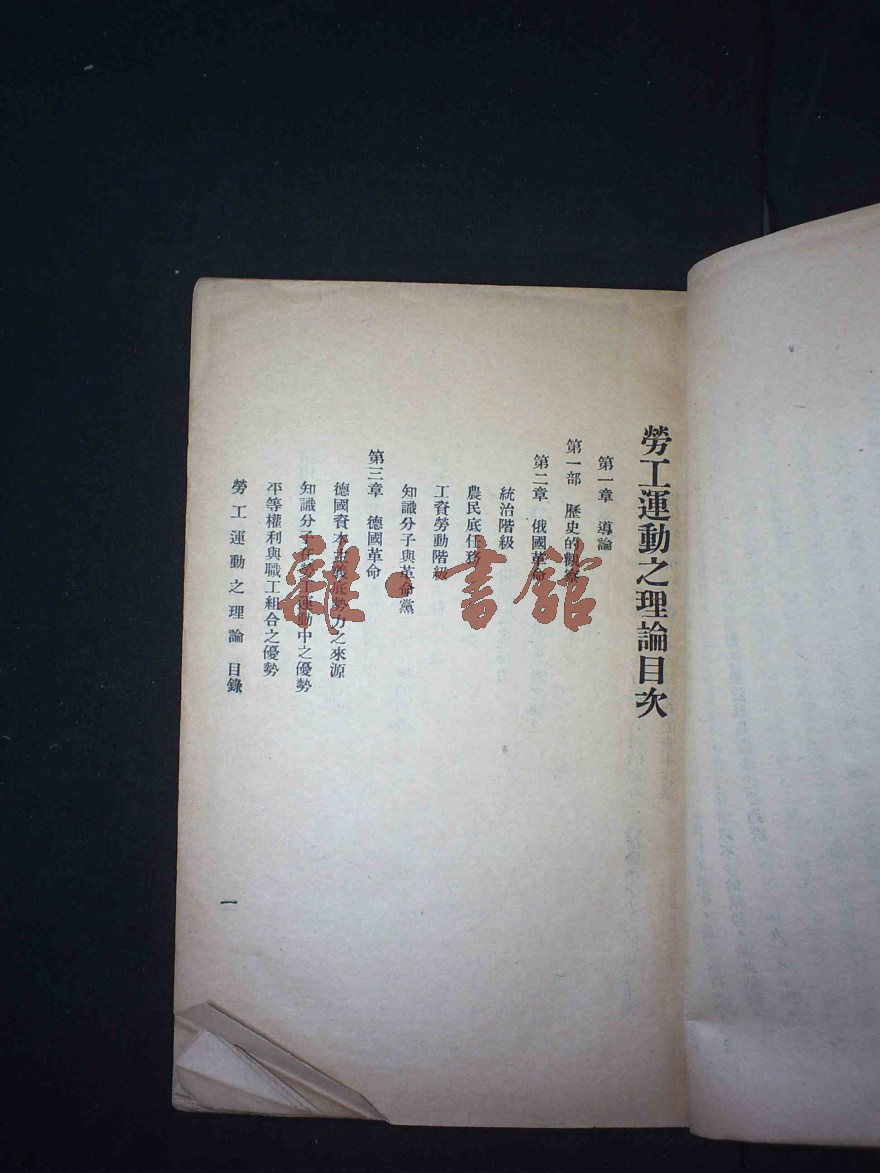 勞工運動之理論目次
第一章　導論
第一部　歷史的觀察
第二章　俄國革命
統治階級
農民底任務
工資勞動階級
知識分子與革命黨
第三章　德國革命
德國資本主義底勢力之來源
知識分子在勞工運動中之優勢
平等權利與職工組合之優勢
勞工運動之理論　目錄
一
雜·書館